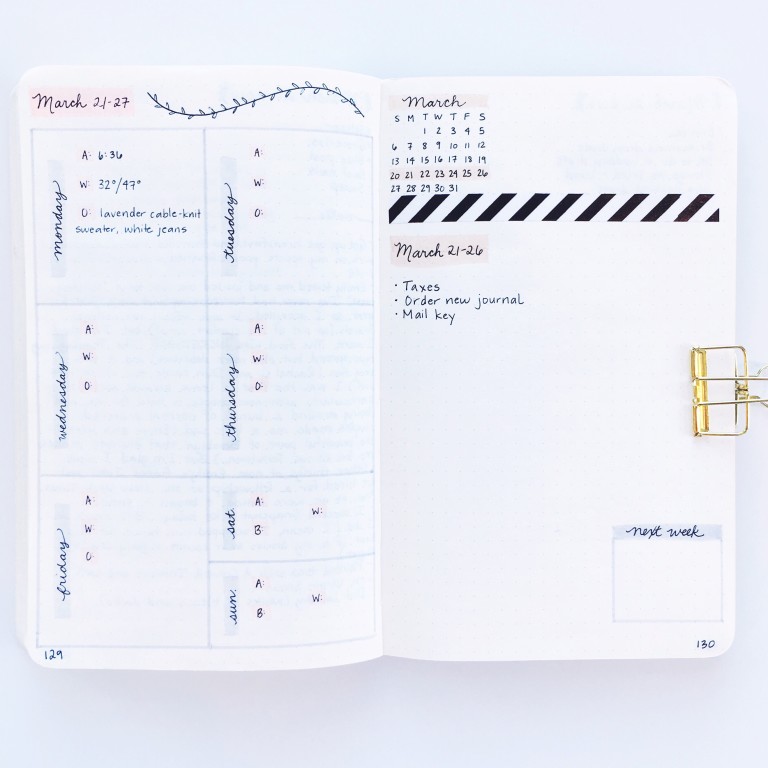 March 21-27
monday
A: 6:36
W: 32°/47°
O: lavender cable-knit
sweater, white jeans
tuesday
A:
W:
O:
wednesday
A:
W:
O:
thursday
A:
W:
O:
friday
A:
W:
O:
sat.
A:
W:
B:
sun.
A:
W:
B:
129
March
S M T W T F S
1 2 3 4 5
6 7 8 9 10 11 12
13 14 15 16 17 18 19
20 21 22 23 24 25 26
27 28 29 30 31
March 21-26
· Taxes
· Order new journal
· Mail key
next week
130